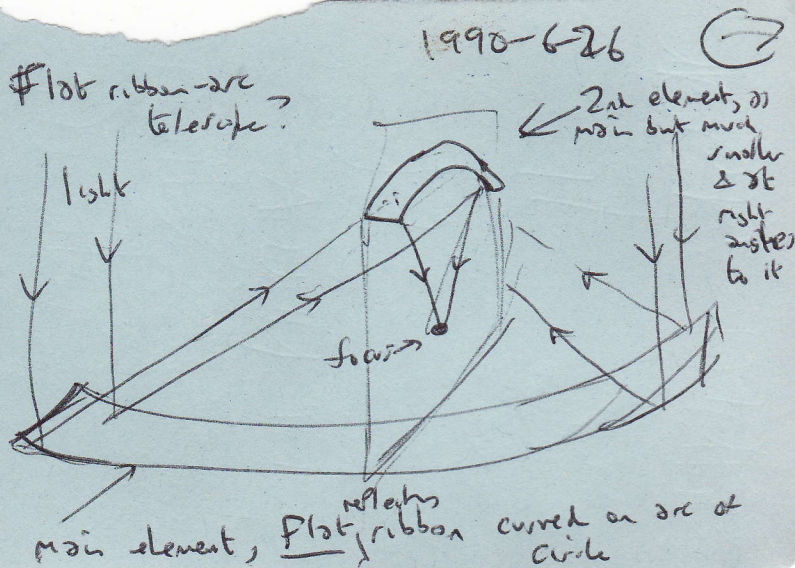 1990-6-26
7
Flat ribbon-arc
telescope?
2nd element, as
main but much
smaller
& at
right
angles
to it
light
focus
reflecting
main element, Flat, ribbon curved on arc of
circle